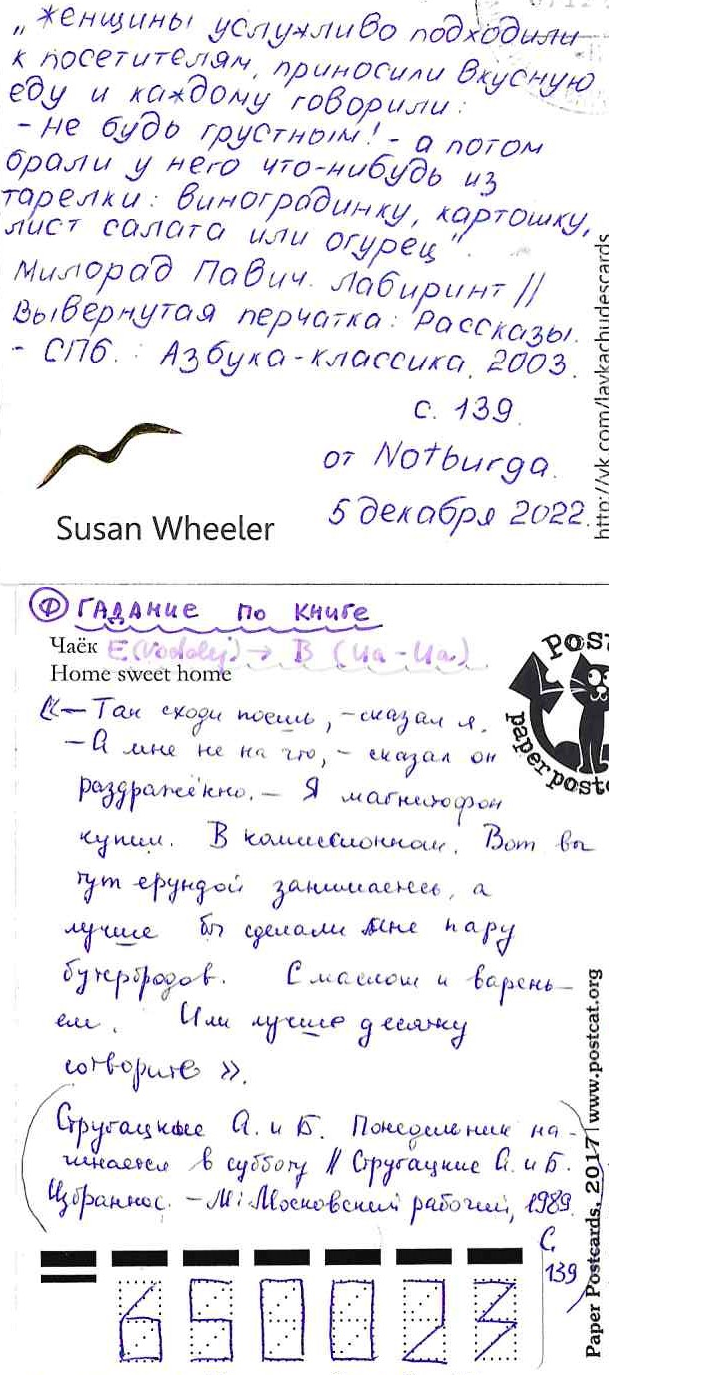 „Женщины услужливо подходили
к посетителям, приносили вкусную
еду и каждому говорили:
- не будь грустным! - а потом
брали у него что-нибудь из
тарелки: виноградинку, картошку,
лист салата или огурец".
Милорад Павич. Лабиринт //
Вывернутая перчатка: Рассказы.
- СПб. : Азбука-классика, 2003.
с. 139.
от Notburga.
5 декабря 2022.
Susan Wheeler
http://vk.com/lavkachudescards
Ф Гадание по книге
Чаёк E (Vodolej) → B (Ua - Ua)
Home sweet home
«— Так сходи поешь, - сказал я.
— А мне не на что, - сказал он
раздражённо. — Я магнитофон
купил. В комиссионном. Вот вы
тут ерундой занимаетесь, а
лучше бы сделали мне пару
бутербродов. С маслом и варень-
ем. Или лучше десятку
сотворите».
Стругацкие А. и Б. Понедельник на-
чинается в субботу // Стругацкие А. и Б.
Избранное. - М: Московский рабочий, 1989.
С.
139
POST
paperpostc
Paper Postcards, 2017 | www.postcat.org
650023